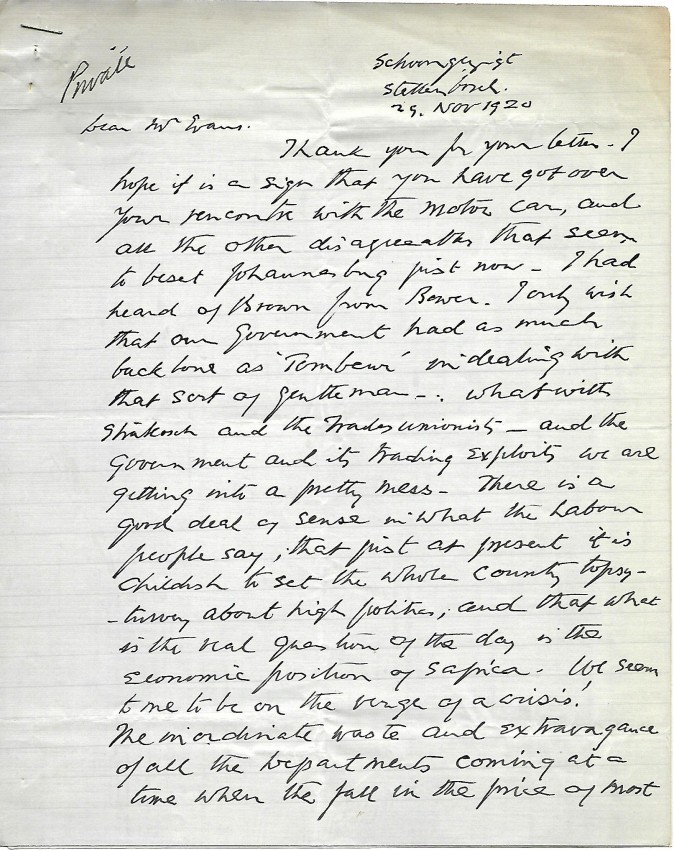 Private
Schoongezigt
Stellenbosch.
29. Nov 1920
Dear Mr Evans.
Thank you for your letter - I
hope it is a sign that you have got over
your rencontre with the motor car, and
all the other disagreeables that seem
to beset Johannesburg just now - I had
heard of Brown from Bower. I only wish
that our Government had as much
backbone as in dealing with
that sort of gentleman - what with
Strakosch and the Trades unionists - and the
Government and its trading exploits we are
getting into a pretty mess - There is a
good deal of sense in what the Labour
people say, that just at present it is
childish to set the whole country topsy-
-turvey about high politics, and that what
is the real question of the day is the
economic position of S africa. We seem
to me to be on the verge of a crisis!
The inordinate waste and extravagance
of all the Departments coming at a
time when the fall in the price of most